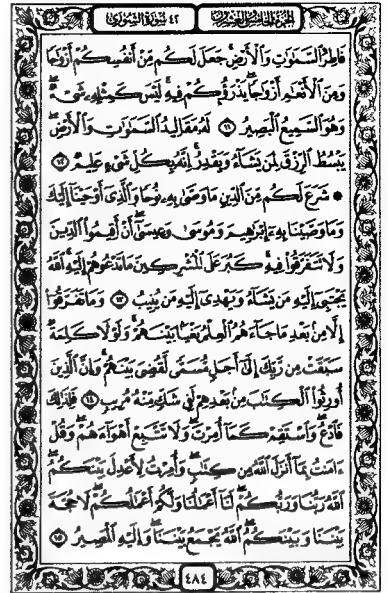 الجزء الخامس والعشرون ٤٢ سورة الشورى
فَاطِرُ ٱلسَّمَٰوَٰتِ وَٱلْأَرْضِ جَعَلَ لَكُم مِّنْ أَنفُسِكُمْ أَزْوَٰجًا
وَمِنَ ٱلْأَنْعَٰمِ أَزْوَٰجًا يَذْرَؤُكُمْ فِيهِ لَيْسَ كَمِثْلِهِۦ شَىْءٌ
وَهُوَ ٱلسَّمِيعُ ٱلْبَصِيرُ ١١ لَهُۥ مَقَالِيدُ ٱلسَّمَٰوَٰتِ وَٱلْأَرْضِ
يَبْسُطُ ٱلرِّزْقَ لِمَن يَشَآءُ وَيَقْدِرُ إِنَّهُۥ بِكُلِّ شَىْءٍ عَلِيمٌ ١٢
۞ شَرَعَ لَكُم مِّنَ ٱلدِّينِ مَا وَصَّىٰ بِهِۦ نُوحًا وَٱلَّذِىٓ أَوْحَيْنَآ إِلَيْكَ
وَمَا وَصَّيْنَا بِهِۦٓ إِبْرَٰهِيمَ وَمُوسَىٰ وَعِيسَىٰٓ أَنْ أَقِيمُوا۟ ٱلدِّينَ
وَلَا تَتَفَرَّقُوا۟ فِيهِ كَبُرَ عَلَى ٱلْمُشْرِكِينَ مَا تَدْعُوهُمْ إِلَيْهِ ٱللَّهُ
يَجْتَبِىٓ إِلَيْهِ مَن يَشَآءُ وَيَهْدِىٓ إِلَيْهِ مَن يُنِيبُ ١٣ وَمَا تَفَرَّقُوٓا۟
إِلَّا مِنۢ بَعْدِ مَا جَآءَهُمُ ٱلْعِلْمُ بَغْيًۢا بَيْنَهُمْ وَلَوْلَا كَلِمَةٌ
سَبَقَتْ مِن رَّبِّكَ إِلَىٰٓ أَجَلٍ مُّسَمًّى لَّقُضِىَ بَيْنَهُمْ وَإِنَّ ٱلَّذِينَ
أُورِثُوا۟ ٱلْكِتَٰبَ مِنۢ بَعْدِهِمْ لَفِى شَكٍّ مِّنْهُ مُرِيبٍ ١٤ فَلِذَٰلِكَ
فَٱدْعُ وَٱسْتَقِمْ كَمَآ أُمِرْتَ وَلَا تَتَّبِعْ أَهْوَآءَهُمْ وَقُلْ
ءَامَنتُ بِمَآ أَنزَلَ ٱللَّهُ مِن كِتَٰبٍ وَأُمِرْتُ لِأَعْدِلَ بَيْنَكُمُ
ٱللَّهُ رَبُّنَا وَرَبُّكُمْ لَنَآ أَعْمَٰلُنَا وَلَكُمْ أَعْمَٰلُكُمْ لَا حُجَّةَ
بَيْنَنَا وَبَيْنَكُمُ ٱللَّهُ يَجْمَعُ بَيْنَنَا وَإِلَيْهِ ٱلْمَصِيرُ ١٥
٤٨٤